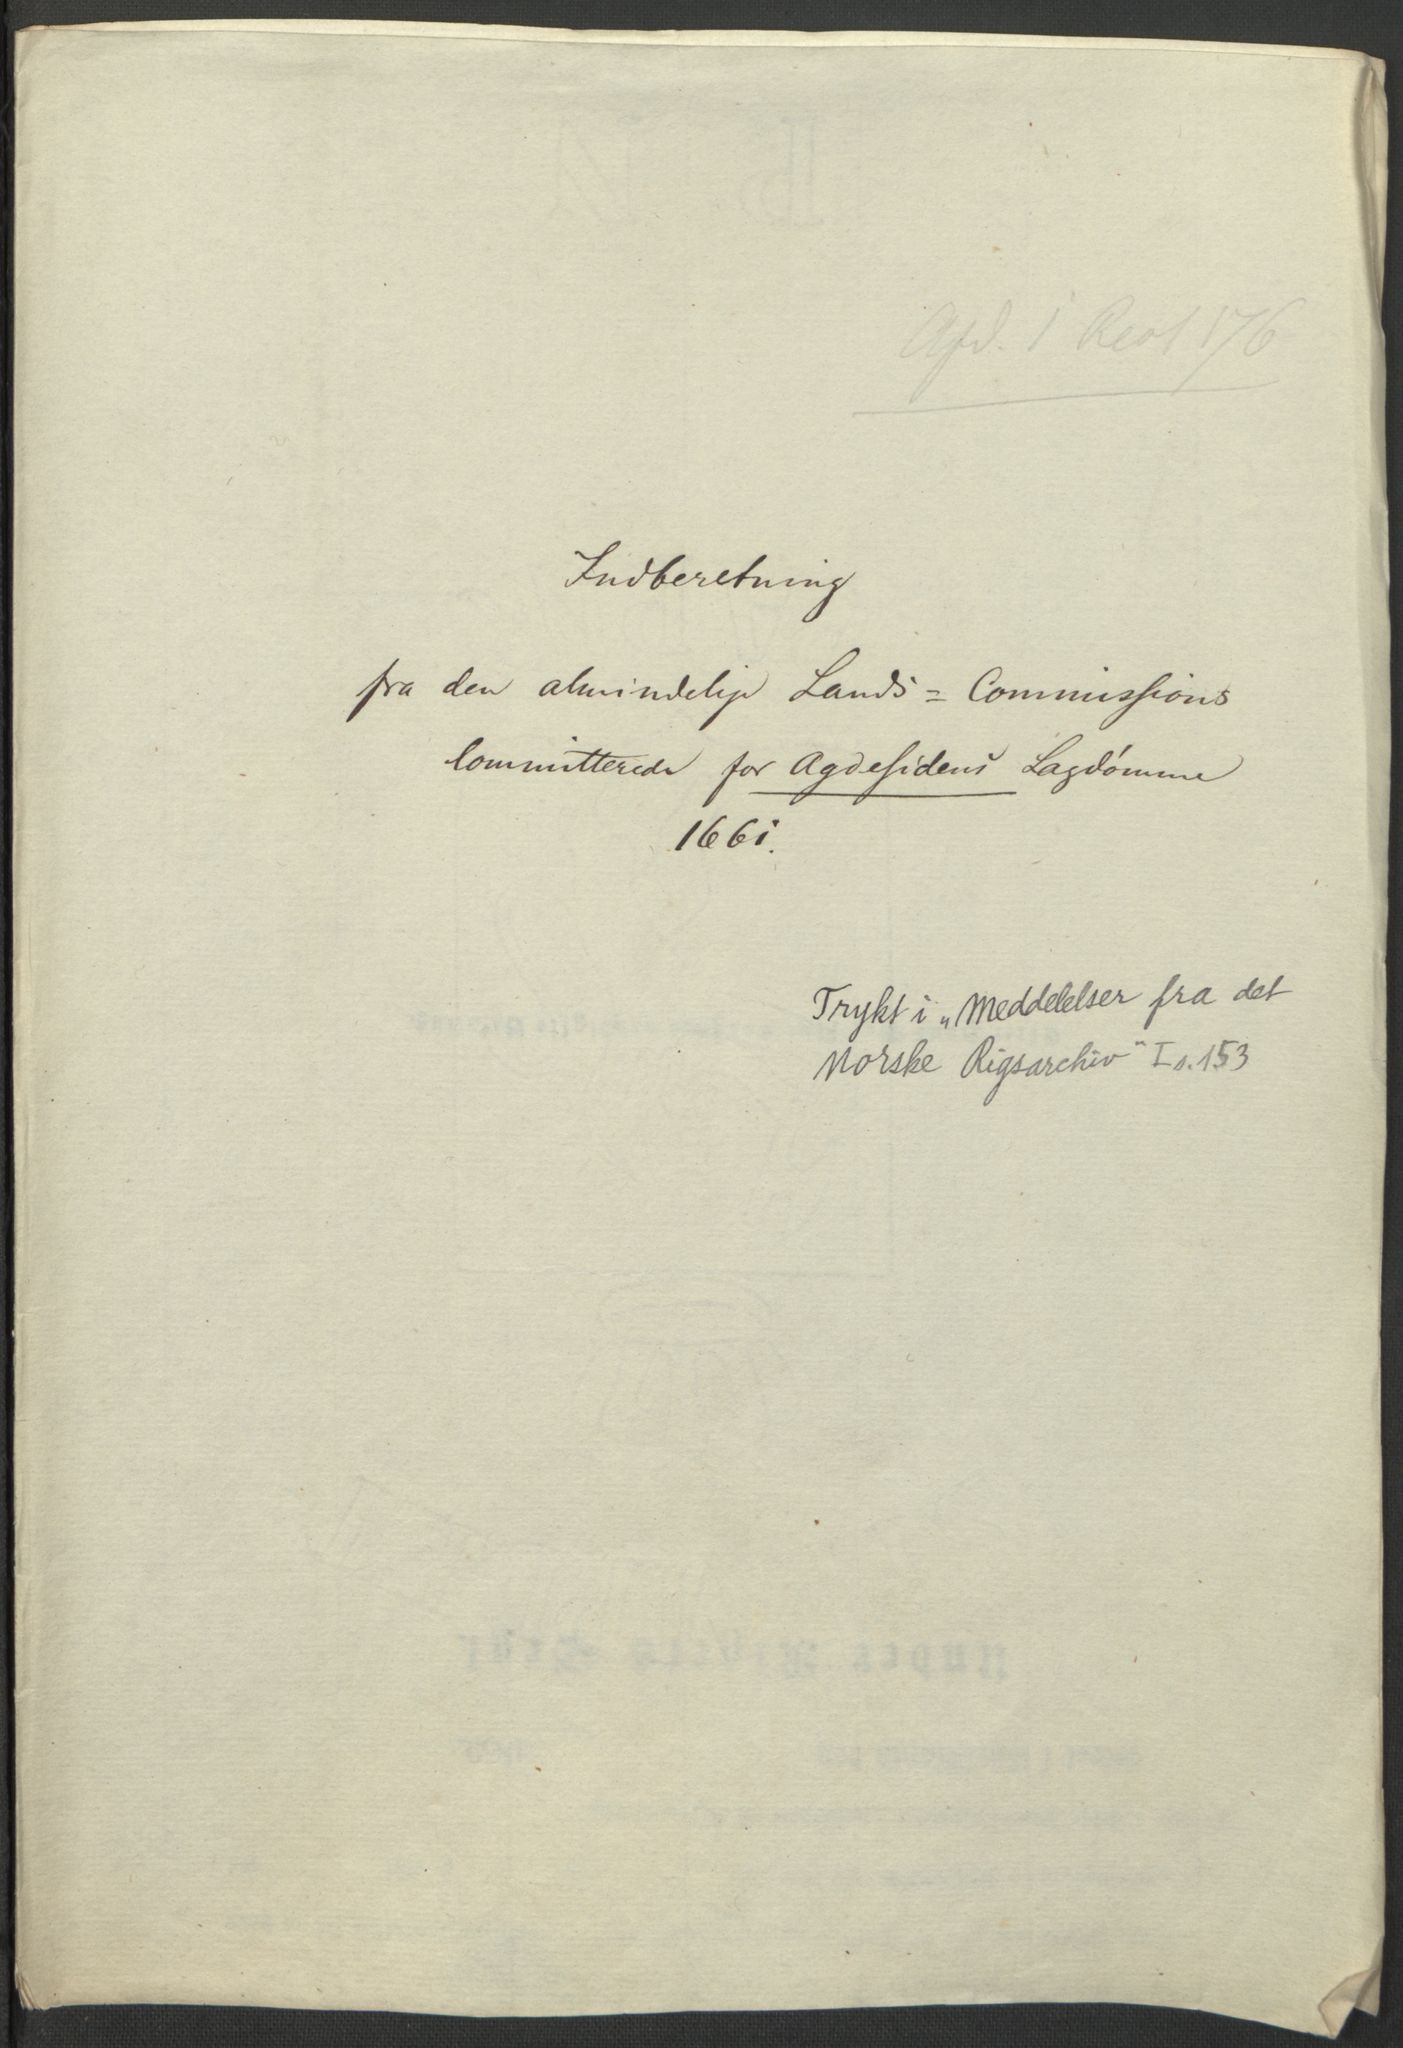 Afd. 1 Reol 176
Indberetning
fra den almindelige Lands = Commissions
Committerede for Agdesidens Lagdømme
1661.
Trykt i „Meddelelser fra det
Norske Rigsarchiv" I s. 153